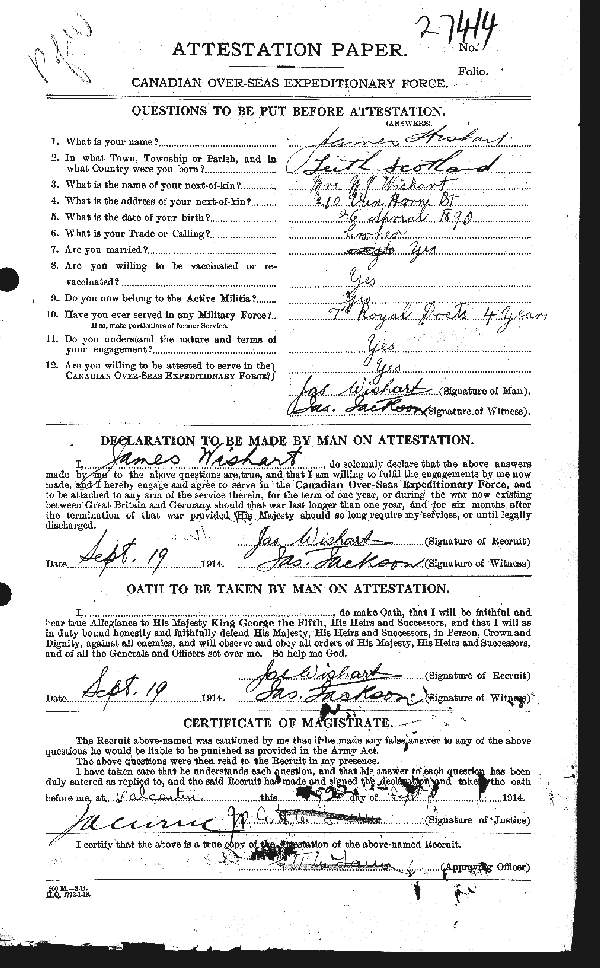 27414
No.
Folio.
ATTESTATION PAPER.
CANADIAN OVER-SEAS EXPEDITIONARY FORCE.
QUESTIONS TO BE PUT BEFORE ATTESTATION.
(ANSWERS)
1. What is your name? James Wishart
2. In what Town, Township or Parish, and in
what Country were you born? Leith Scotland
3. What is the name of your next-of-kin? Wishart
4. What is the address of your next-of-kin? St
5. What is the date of your birth? 26 1890
6. What is your Trade or Calling?
7. Are you married? Yes
8. Are you willing to be vaccinated or re-
vaccinated? Yes
9. Do you now belong to the Active Militia? Yes
10. Have you ever served in any Military Force? Royal Scots 4 Years
If so, state particulars of former Service.
11. Do you understand the nature and terms of
your engagement? Yes
12. Are you willing to be attested to serve in the
CANADIAN OVER-SEAS EXPEDITIONARY FORCE? Yes
Jas Wishart (Signature of Man).
Jas. Jackson (Signature of Witness).
DECLARATION TO BE MADE BY MAN ON ATTESTATION.
I, James Wishart, do solemnly declare that the above answers
made by me to the above questions are true, and that I am willing to fulfil the engagements by me now
made, and I hereby engage and agree to serve in the Canadian Over-Seas Expeditionary Force, and
to be attached to any arm of the service therein, for the term of one year, or during the war now existing
between Great Britain and Germany should that war last longer than one year, and for six months after
the termination of that war provided His Majesty should so long require my services, or until legally
discharged.
Jas Wishart (Signature of Recruit)
Date Sept. 19 1914. Jas. Jackson (Signature of Witness)
OATH TO BE TAKEN BY MAN ON ATTESTATION.
I, , do make Oath, that I will be faithful and
bear true Allegiance to His Majesty King George the Fifth, His Heirs and Successors, and that I will as
in duty bound honestly and faithfully defend His Majesty, His Heirs and Successors, in Person, Crown and
Dignity, against all enemies, and will observe and obey all orders of His Majesty, His Heirs and Successors,
and of all the Generals and Officers set over me. So help me God.
Jas Wishart (Signature of Recruit)
Date Sept. 19 1914. Jas. Jackson (Signature of Witness)
CERTIFICATE OF MAGISTRATE.
The Recruit above-named was cautioned by me that if he made any false answer to any of the above
questions he would be liable to be punished as provided in the Army Act.
The above questions were then read to the Recruit in my presence.
I have taken care that he understands each question, and that his answer to each question has been
duly entered as replied to, and the said Recruit has made and signed the declaration and taken the oath
before me, at Valcartier this day of 1914.
(Signature of Justice)
I certify that the above is a true copy of the Attestation of the above-named Recruit.
(Approving Officer)